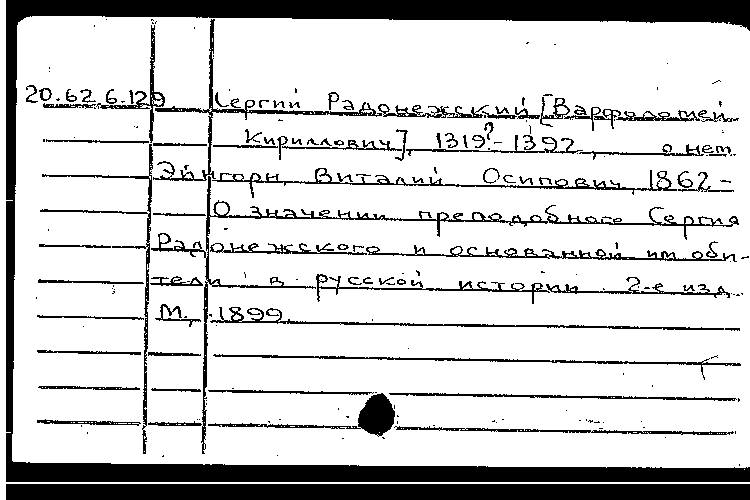 20.62.6.129. Сергий Радонежский [Варфоломей
Кириллович], 1319?-1392, о нем
Эйнгорн, Виталий Осипович, 1862-
О значении преподобного Сергия
Радонежского и основанной им оби-
тели в русской истории. 2-е изд.
М., 1899.